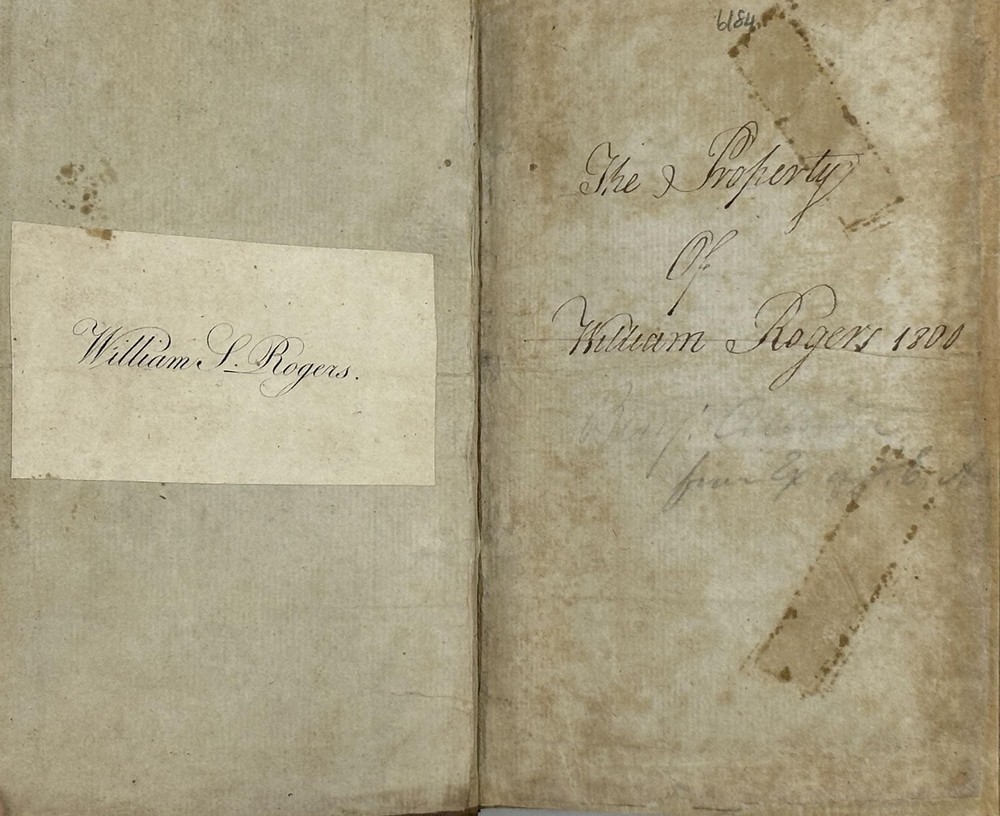 William S. Rogers.
6184
The Property
Of
William Rogers 1800